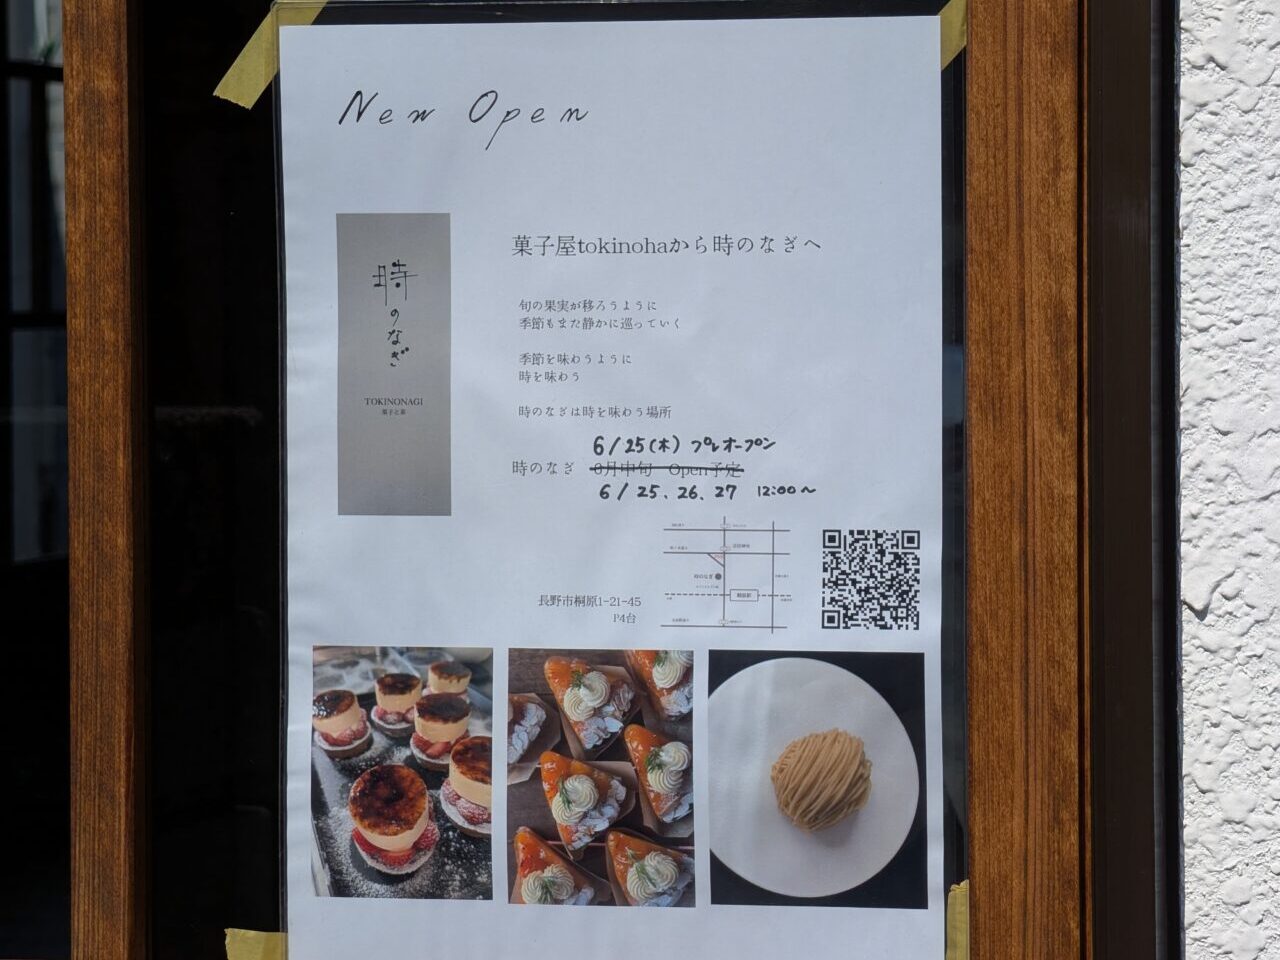 New Open
時のなぎ
TOKINONAGI
菓子屋tokinohaから時のなぎへ
旬の果実が移ろうように
季節もまた静かに巡っていく
季節を味わうように
時を味わう
時のなぎは時を味わう場所
6/25(木) プレオープン
時のなぎ 6月中旬 Open予定
6/25.26.27 12:00〜
時のなぎ
長野市桐原1-21-45
P4台